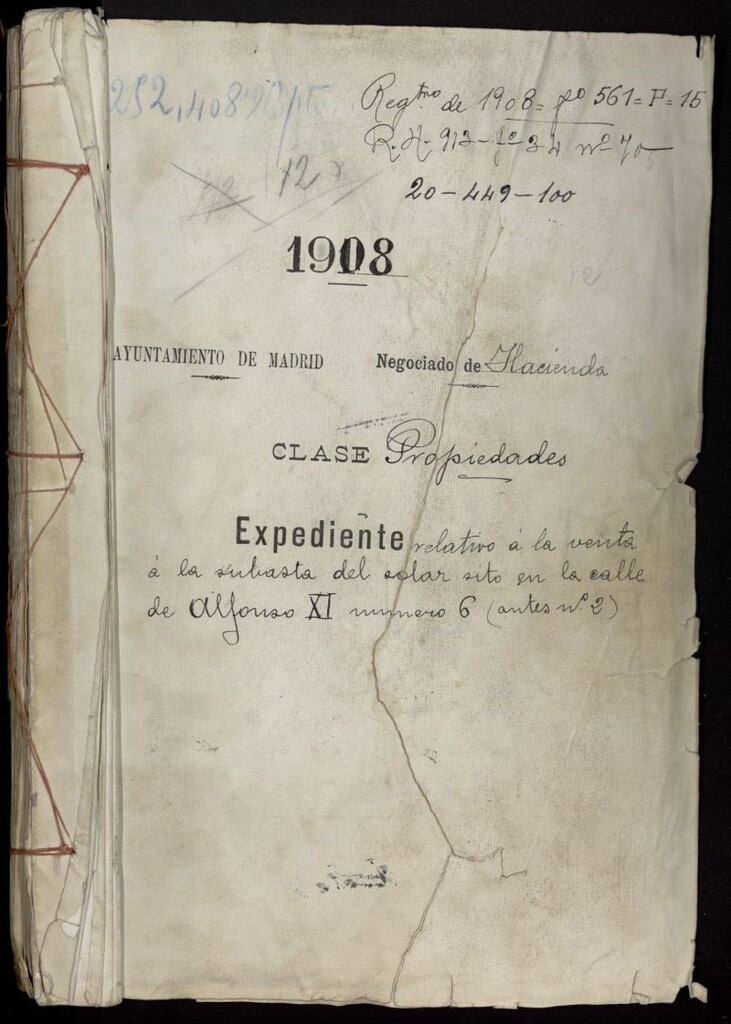 252,408
Regtro de 1908 = fo 561 = P = 15
R.H. 913 - fo 34 no 70
12
20 - 449 - 100
1908
12
AYUNTAMIENTO DE MADRID Negociado de Hacienda
CLASE Propiedades
Expediente relativo á la venta
á la subasta del solar sito en la calle
de Alfonso XI numero 6 (antes no. 2)